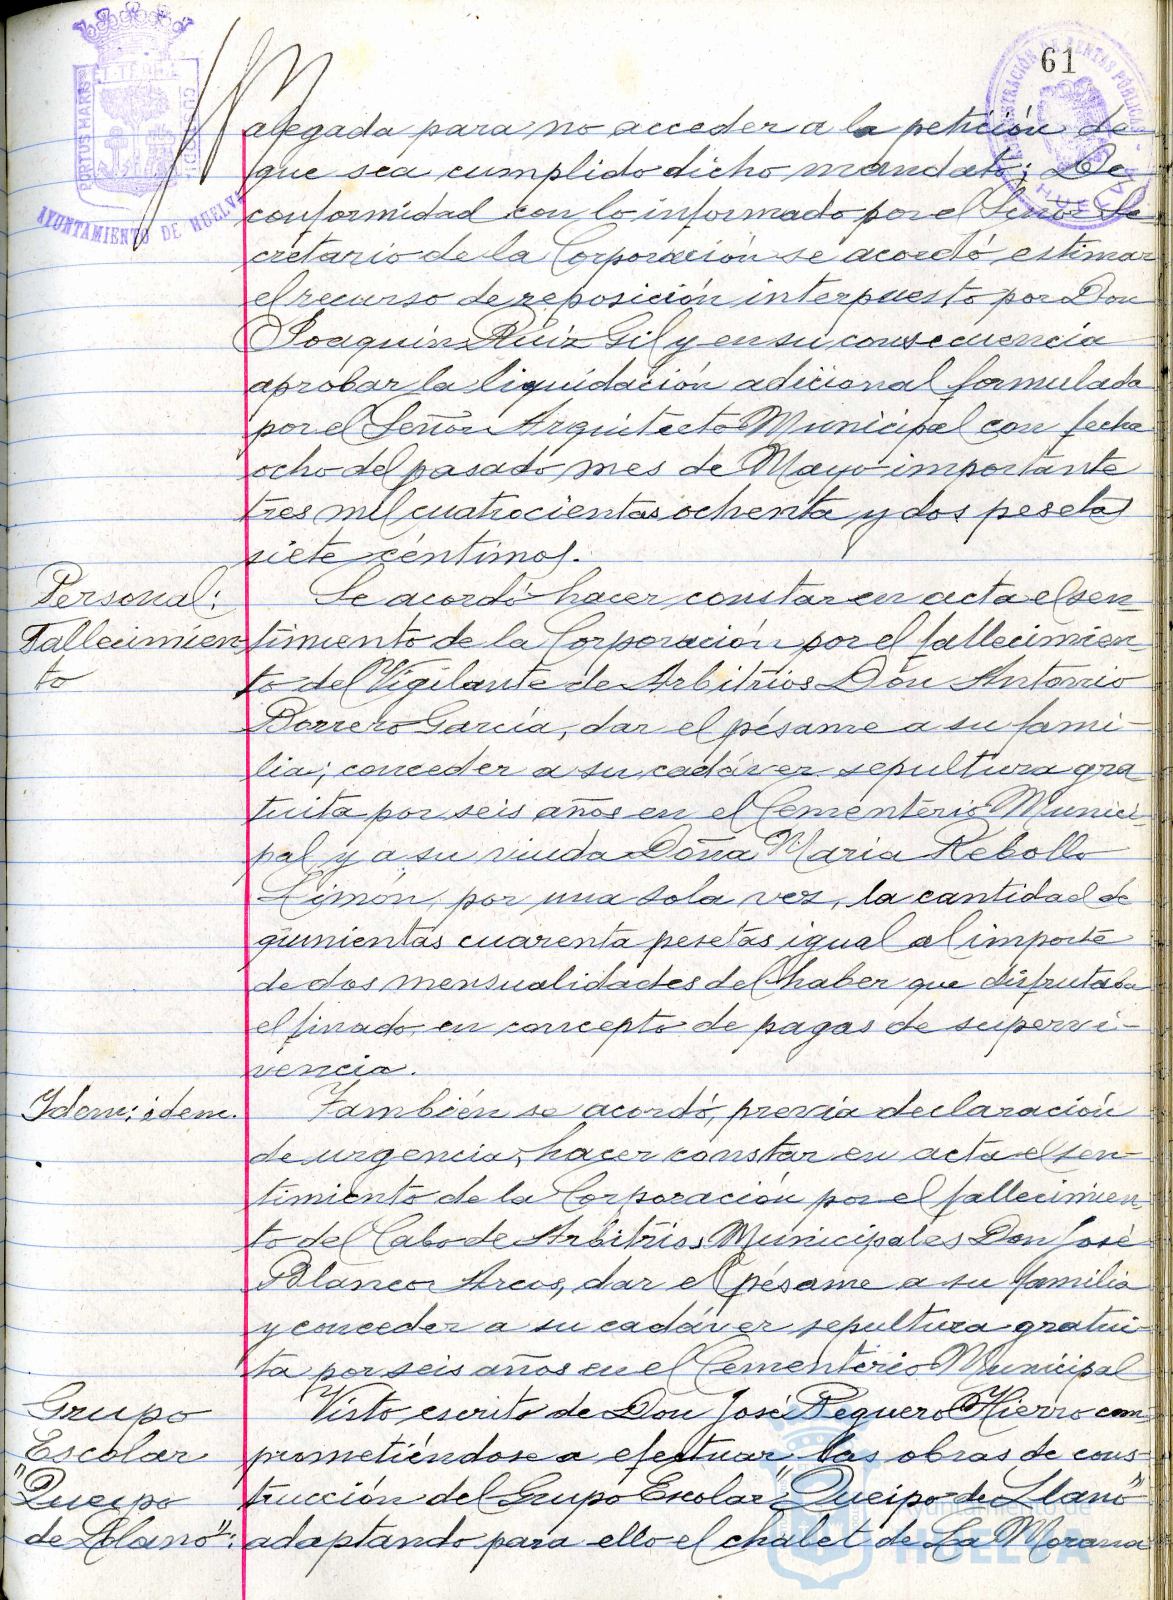 61
PORTUS MARIS ET TERRÆ CUSTODIA
AYUNTAMIENTO DE HUELVA
ADMINISTRACIÓN DE RENTAS PÚBLICAS
HUELVA
alegada para no acceder a la petición de
que sea cumplido dicho mandato; De
conformidad con lo informado por el Señor Se
cretario de la Corporación se acordó estimar
el recurso de reposición interpuesto por Don
Joaquín Ruiz Gil y en su consecuencia
aprobar la liquidación adicional formulada
por el Señor Arquitecto Municipal con fecha
ocho del pasado mes de Mayo importante
tres mil cuatrocientas ochenta y dos pesetas
siete céntimos.
Personal:
Fallecimien
to
Se acordó hacer constar en acta el sen-
timiento de la Corporación por el fallecimien-
to del Vigilante de Arbitrios Don Antonio
Borrero García, dar el pésame a su fami-
lia; conceder a su cadáver sepultura gra
tuita por seis años en el Cementerio Munici-
pal y a su viuda Doña Maria Rebollo
Limón, por una sola vez, la cantidad de
quinientas cuarenta pesetas igual al importe
de dos mensualidades del haber que disfrutaba
el finado en concepto de pagas de supervi-
vencia.
Idem: idem.
También se acordó, previa declaración
de urgencia, hacer constar en acta el sen-
timiento de la Corporación por el fallecimien-
to del Cabo de Arbitrios Municipales Don José
Blanco Arcos, dar el pésame a su familia
y conceder a su cadáver sepultura gratui-
ta por seis años en el Cementerio Municipal
Grupo
Escolar
"Queipo
de Llano":
Visto escrito de Don José Peguero Hierro com
prometiéndose a efectuar las obras de cons-
trucción del Grupo Escolar "Queipo de Llano"
adaptando para ello el chalet de La Morana
Ayuntamiento de
HUELVA